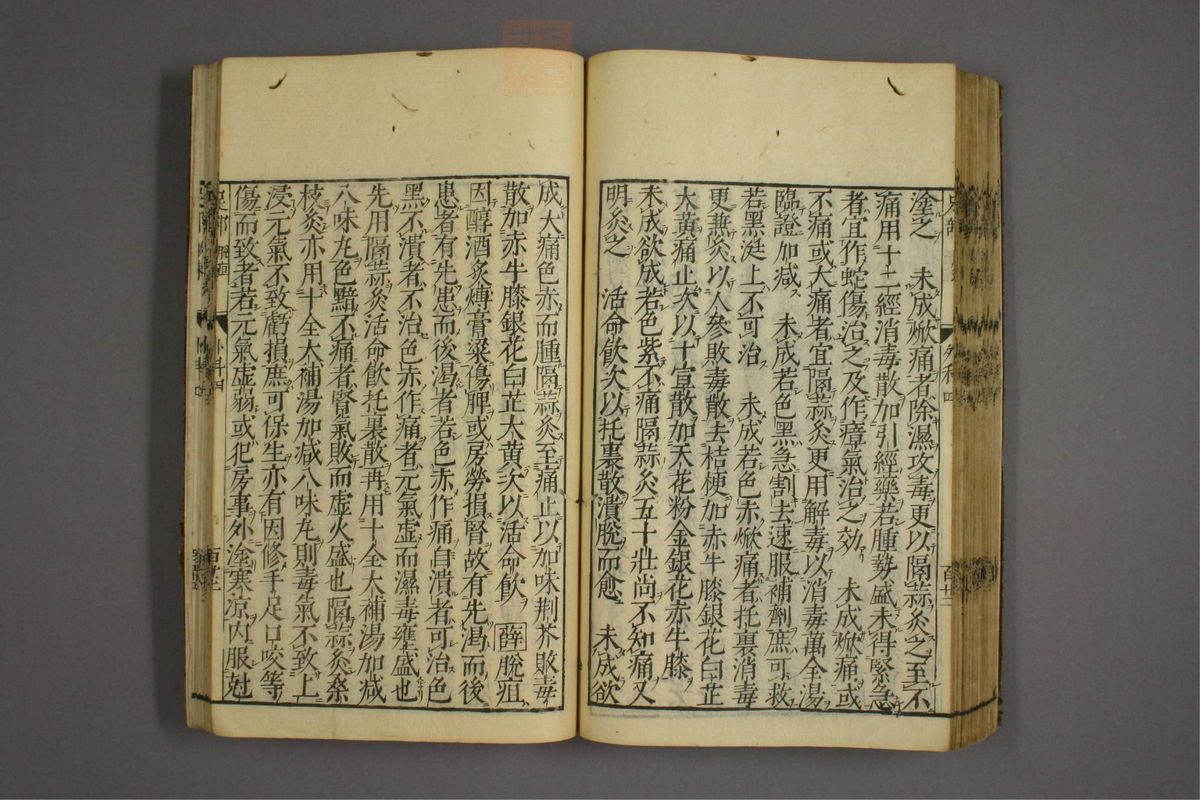 塗之　未成焮痛者除濕攻毒更以隔蒜灸之至不
痛用十二經消毒散加引經藥若腫勢盛未得緊急
者宜作蛇傷治之及作瘴氣治之効　未成焮痛或
不痛或大痛者宜隔蒜灸更用解毒以消毒萬全湯
臨證加减　未成若色黑急割去速服補劑庶可救
若黑涎上不可治　未成若色赤焮痛者托裏消毒
更兼灸以人參敗毒散去桔梗加赤牛膝銀花白芷
大黄痛止次以十宣散加天花粉金銀花赤牛膝
未成欲成若色紫不痛隔蒜灸五十壯尚不知痛又
明灸之　活命飲次以托裏散潰脫而愈　未成欲
成大痛色赤而腫隔蒜灸至痛止以加味荆芥敗毒
散加赤牛膝銀花白芷大黄次以活命飲　薛脫疽
因醇酒炙煿膏粱傷脾或房勞損腎故有先渴而後
患者有先患而後渴者若色赤作痛自潰者可治色
黑不潰者不治色赤作痛者元氣虚而濕毒壅盛也
先用隔蒜灸活命飲托裏散再用十全大補湯加减
八味丸色黯不痛者腎氣敗而虚火盛也隔蒜灸桑
枝灸亦用十全大補湯加减八味丸則毒氣不致上
浸元氣不致虧損庶可保生亦有因修手足口咬等
傷而致者若元氣虚弱或犯房事外塗寒凉内服尅